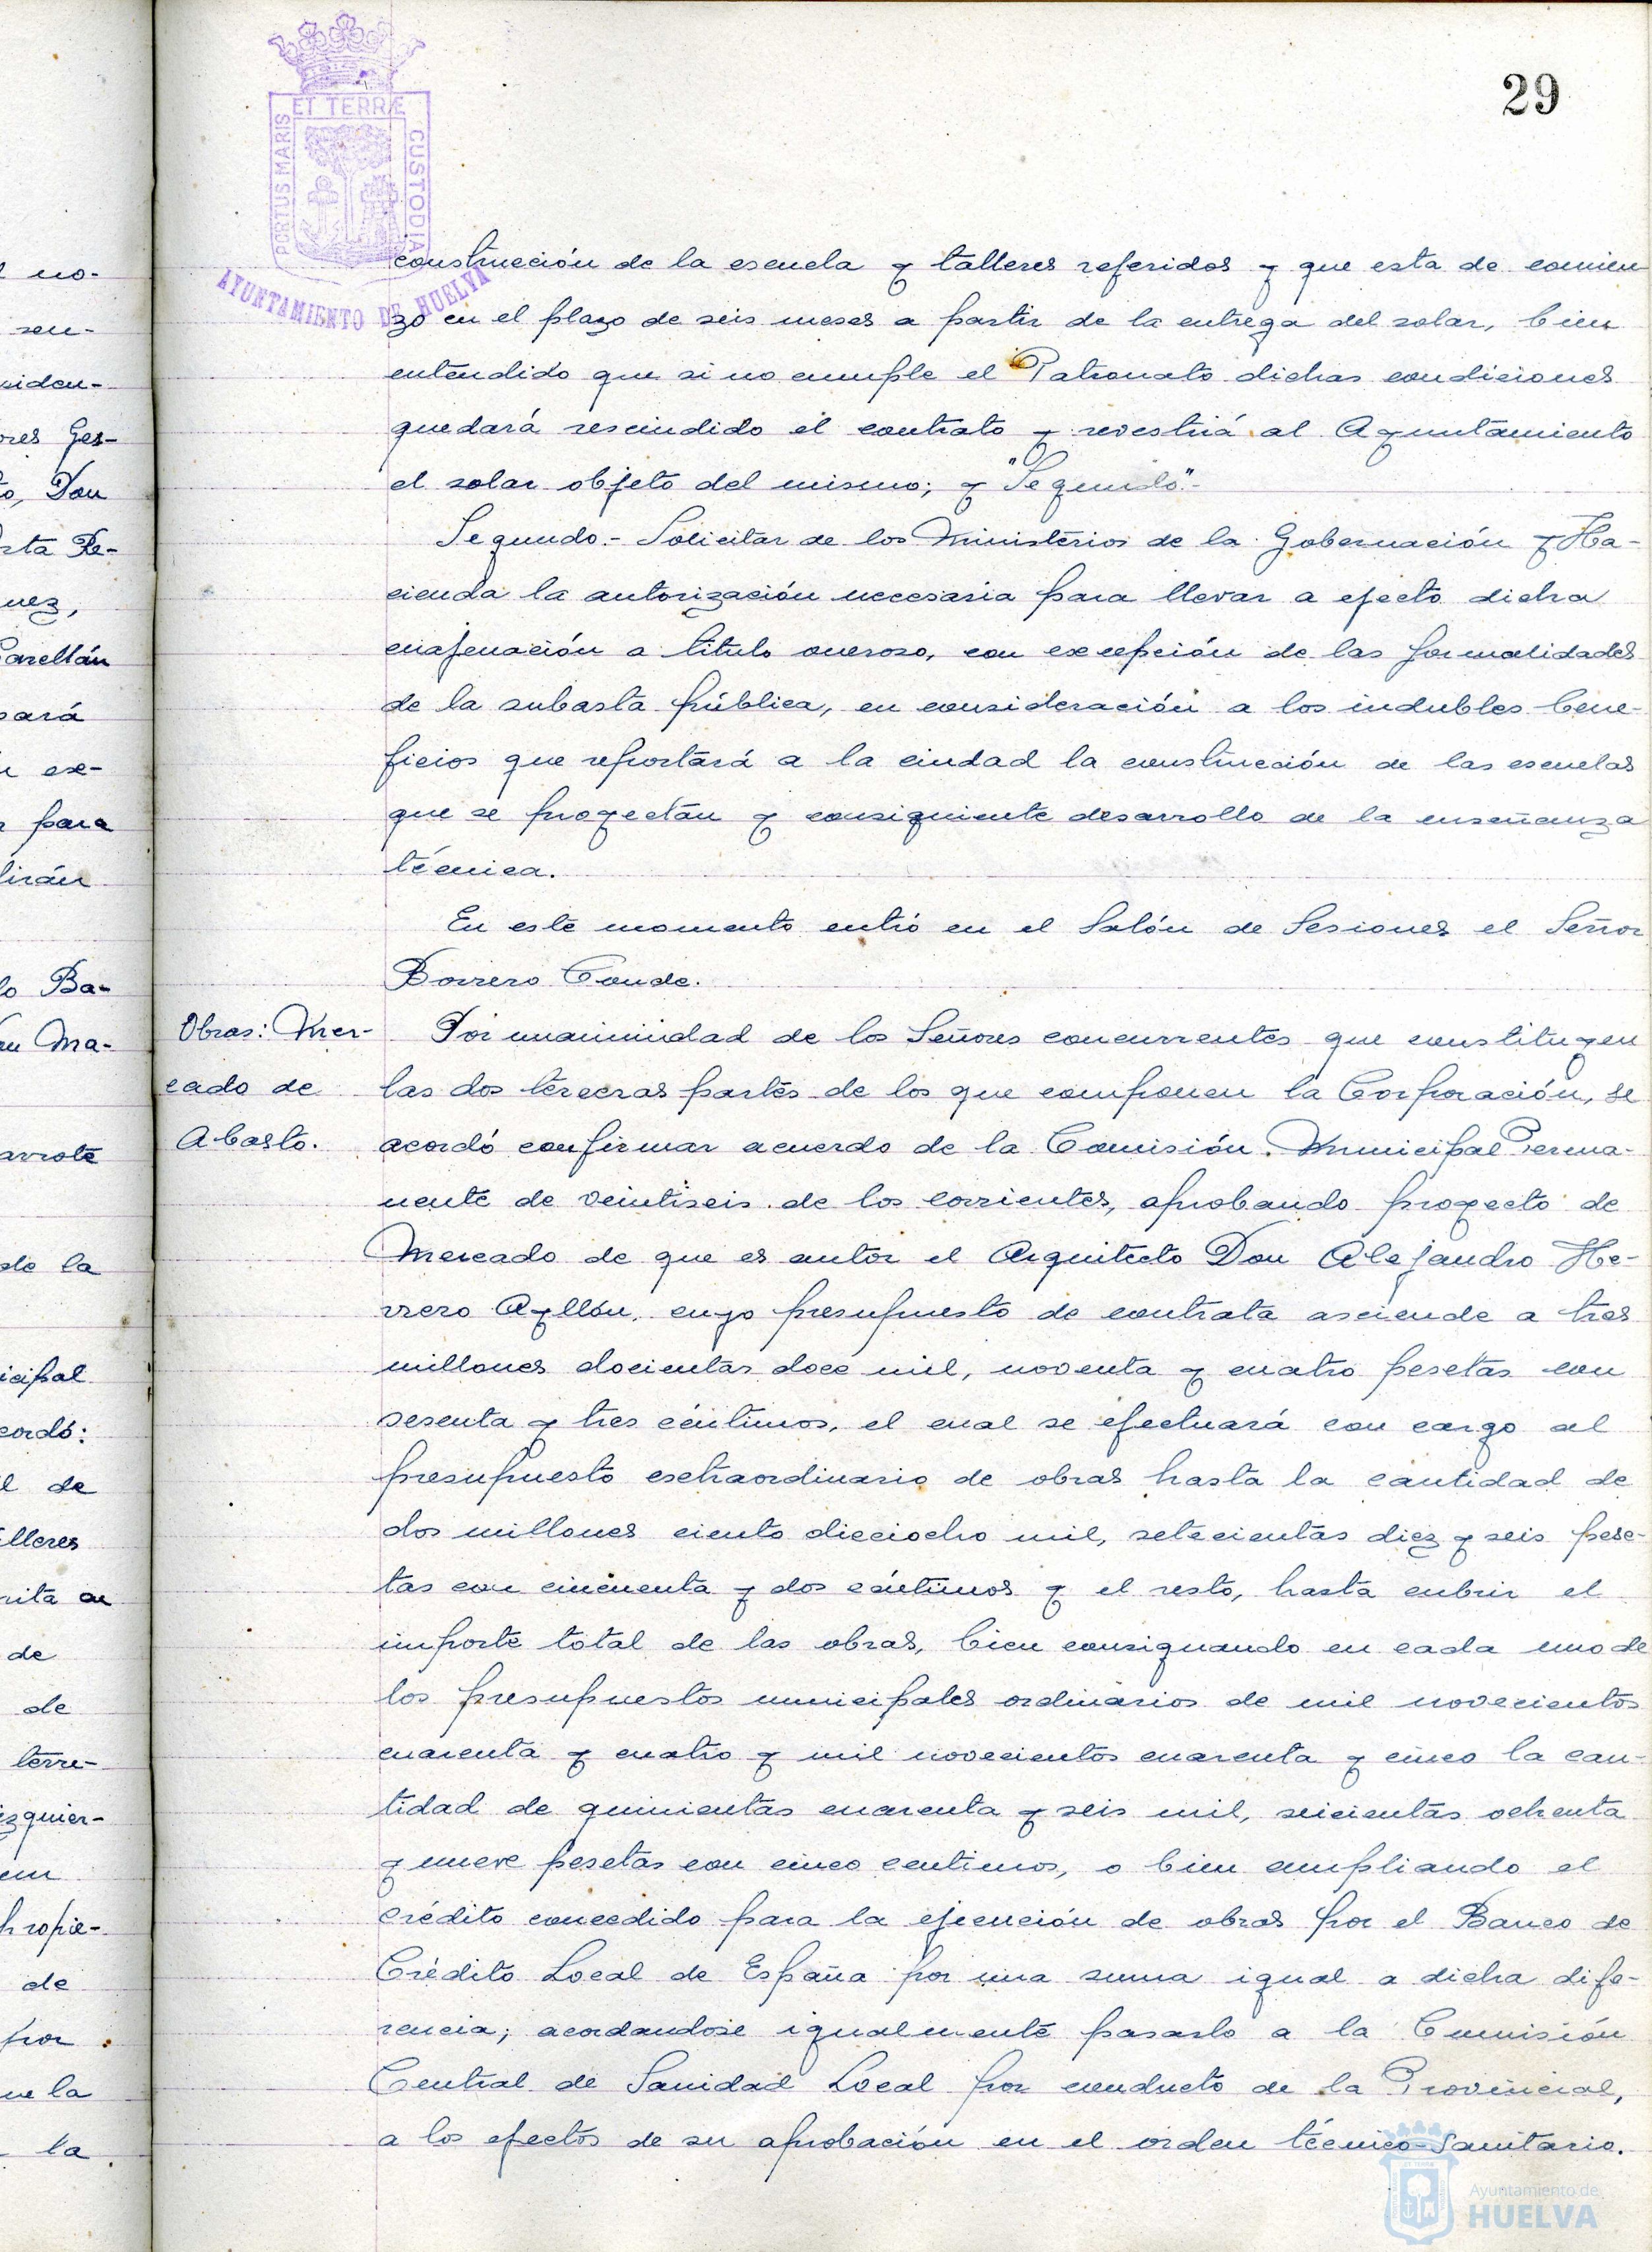 29
ET TERRÆ
PORTUS MARIS
CUSTODIA
AYUNTAMIENTO DE HUELVA
construcción de la escuela y talleres referidos y que esta de comien
zo en el plazo de seis meses a partir de la entrega del solar, bien
entendido que si no cumple el Patronato dichas condiciones
quedará rescindido el contrato y revestirá al Ayuntamiento
el solar objeto del mismo; y "Segundo".-
Segundo.- Solicitar de los Ministerios de la Gobernación y Ha-
cienda la autorización necesaria para llevar a efecto dicha
enajenación a título oneroso, con excepción de las formalidades
de la subasta pública, en consideración a los indubles bene-
ficios que reportará a la ciudad la construcción de las escuelas
que se proyectan y consiguiente desarrollo de la enseñanza
técnica.
En este momento entró en el Salón de Sesiones el Señor
Borrero Conde.
Obras: Mer-
cado de
Abasto.
Por unanimidad de los Señores concurrentes que constituyen
las dos terceras partes de los que componen la Corporación, se
acordó confirmar acuerdo de la Comisión Municipal Perma-
nente de veintiseis de los corrientes, aprobando proyecto de
Mercado de que es autor el Arquitecto Don Alejandro He-
rrero Ayllón, cuyo presupuesto de contrata asciende a tres
millones docientas doce mil, noventa y cuatro pesetas con
sesenta y tres céntimos, el cual se efectuará con cargo al
presupuesto extraordinario de obras hasta la cantidad de
dos millones ciento dieciocho mil, setecientas diez y seis pese-
tas con cincuenta y dos céntimos y el resto, hasta cubrir el
importe total de las obras, bien consignando en cada uno de
los presupuestos municipales ordinarios de mil novecientos
cuarenta y cuatro y mil novecientos cuarenta y cinco la can-
tidad de quinientas cuarenta y seis mil, seicientas ochenta
y nueve pesetas con cinco centimos, o bien ampliando el
crédito concedido para la ejecución de obras por el Banco de
Crédito Local de España por una suma igual a dicha dife-
rencia; acordandose igualmente pasarlo a la Comisión
Central de Sanidad Local por conducto de la Provincial,
a los efectos de su aprobación en el orden técnico-Sanitario.
Ayuntamiento de
HUELVA